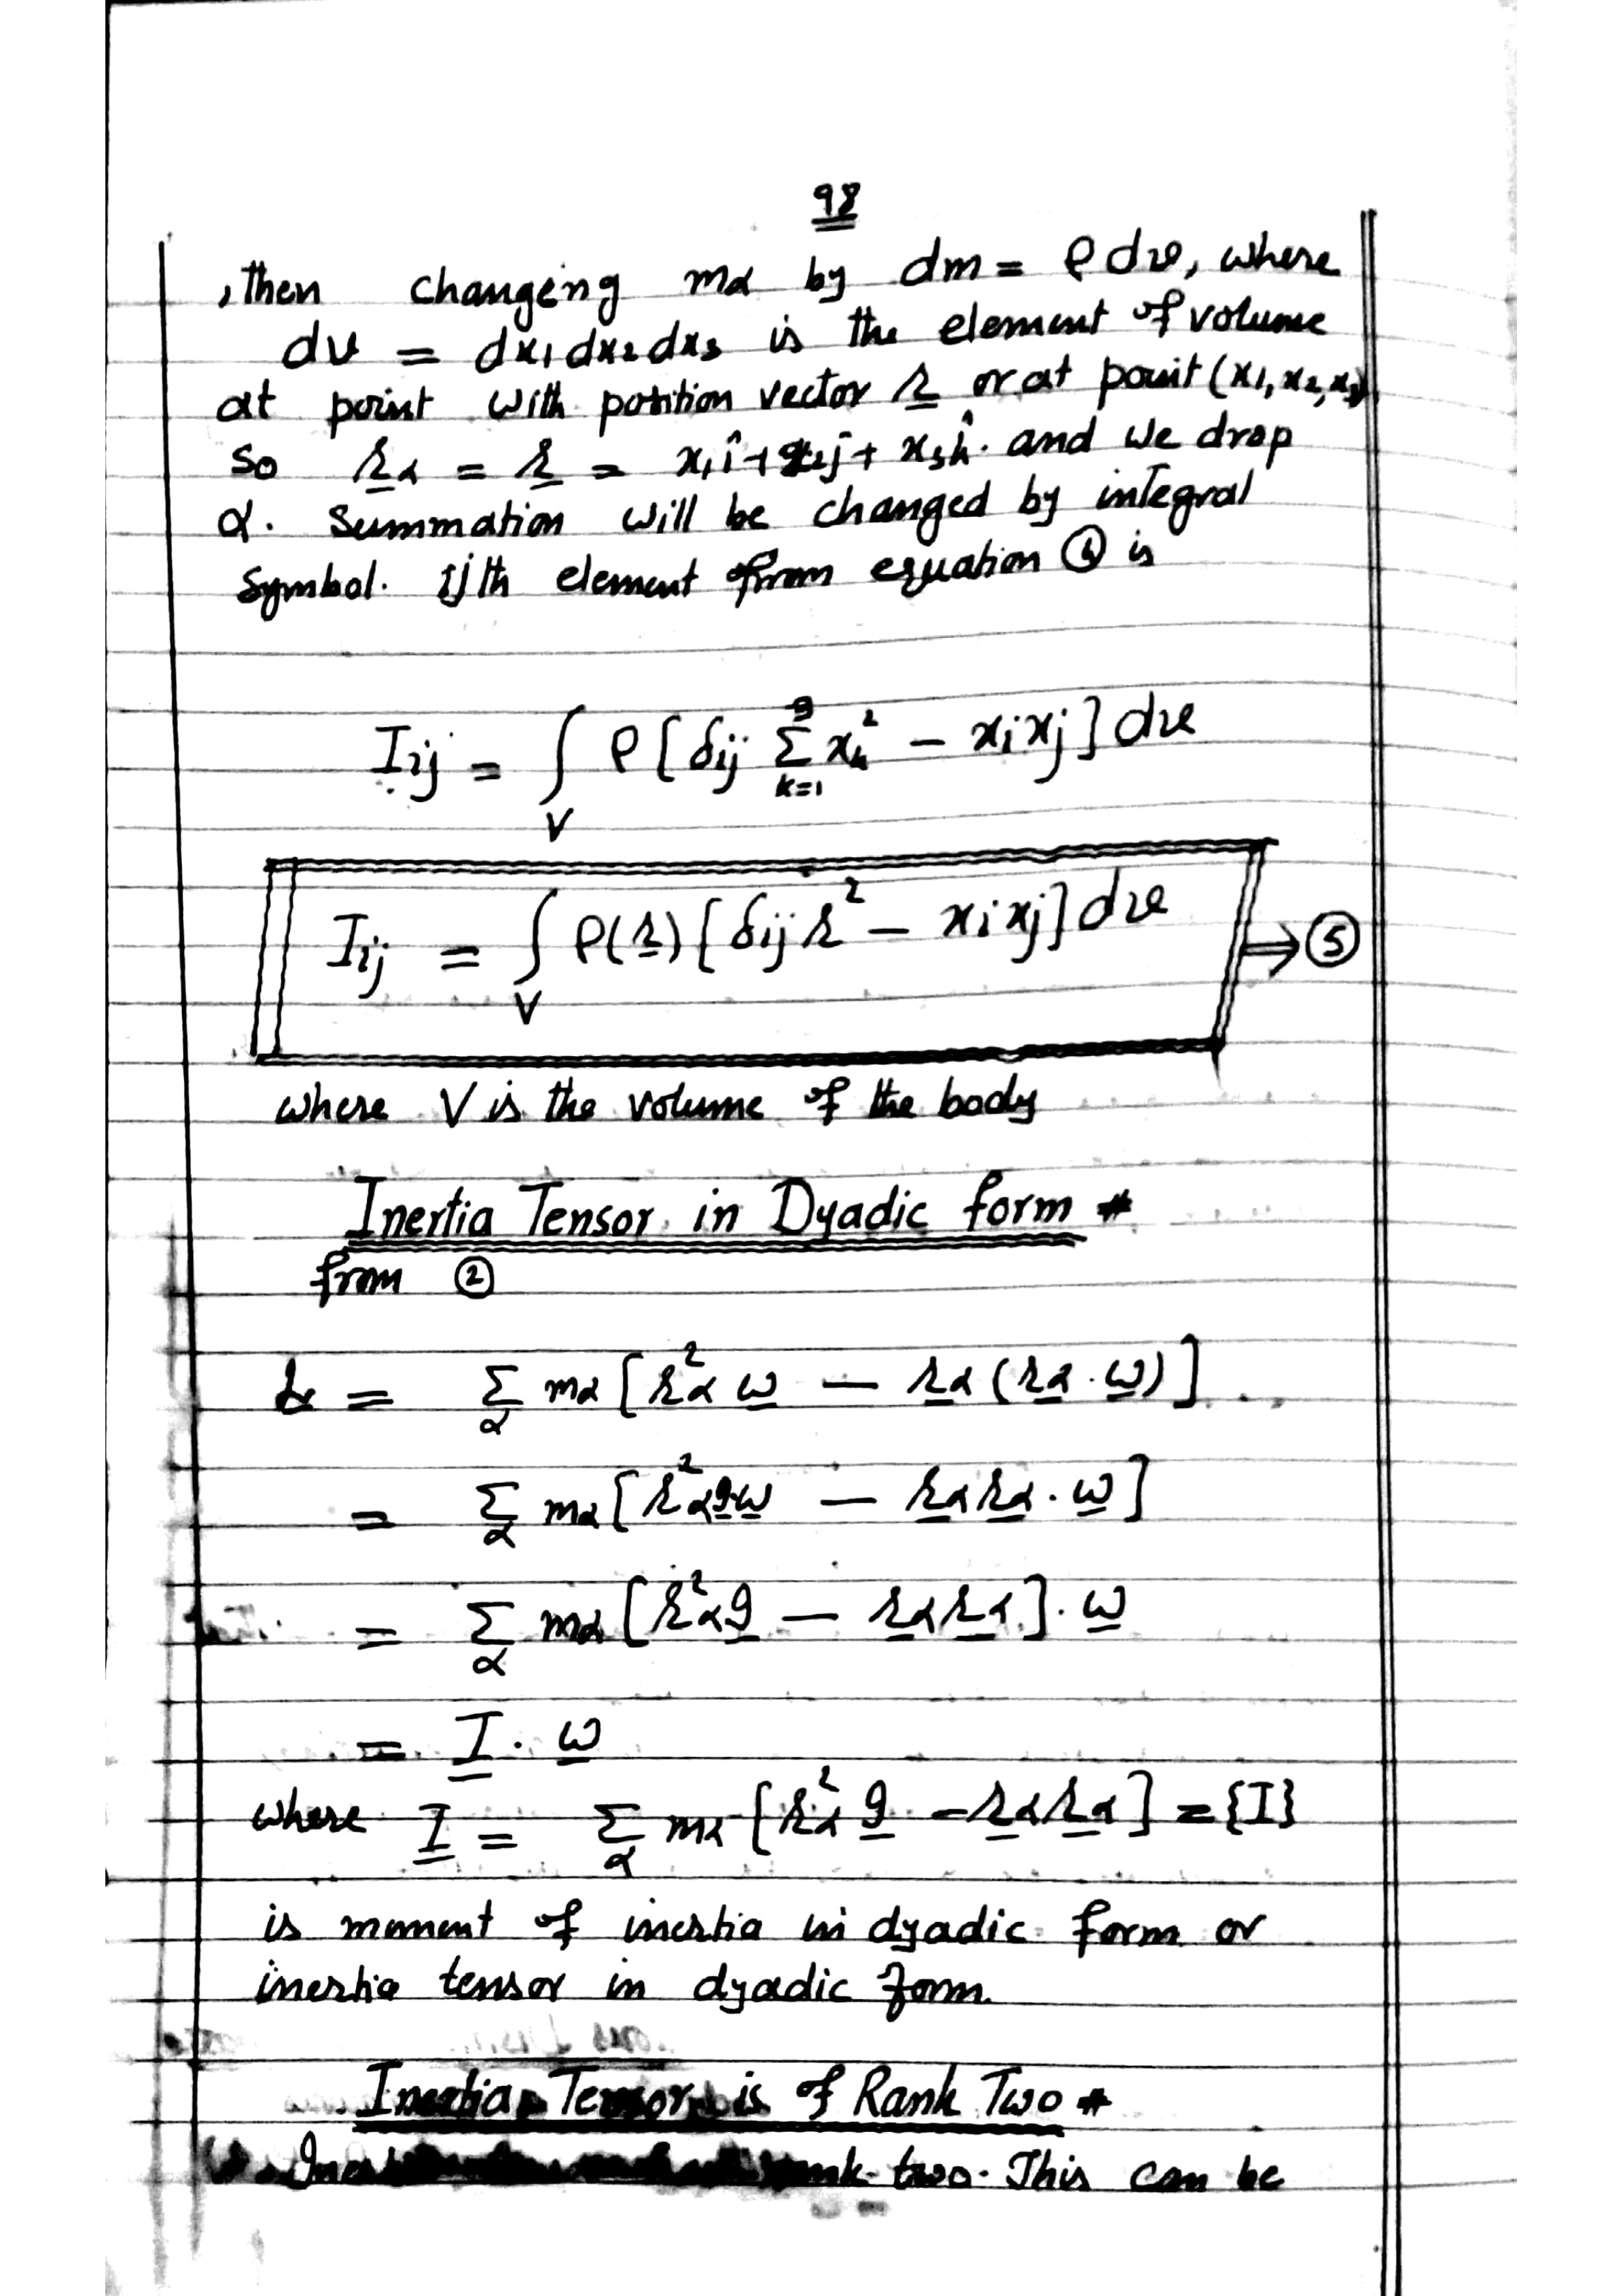 98
, Then changeing mα by dm = ρdv, where
dv = dx₁dx₂dx₃ is the element of volume
at point with position vector r or at point (x₁, x₂, x₃)
so r̲α = r̲ = x₁î + x₂ĵ + x₃k̂. and we drop
α. Summation will be changed by integral
Symbol. Ijth element from equation ④ is
Iij = ∫V ρ[δij Σ³k=1 xk² – xixj] dv
Iij = ∫V ρ(r̲)[δij r² – xixj] dv ⇒ ⑤
where V is the volume of the body
Inertia Tensor in Dyadic form #
from ②
L̲ = Σα mα [r²α ω̲ – r̲α (r̲α · ω̲)]
= Σα mα [r²α 𝒥̲·ω̲ – r̲α r̲α · ω̲]
= Σα mα [r²α 𝒥̲ – r̲α r̲α] · ω̲
= I̲ · ω̲
where I̲ = Σα mα [r²α 𝒥̲ – r̲α r̲α] = {I}
is moment of inertia in dyadic form or
inertia tensor in dyadic form.
Inertia Tensor is of Rank Two #
two. This can be